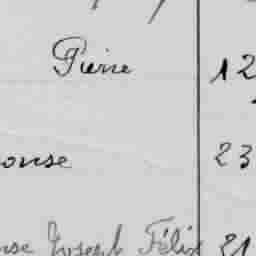 Pierre 12
onse 23
nse Joseph Félix 21